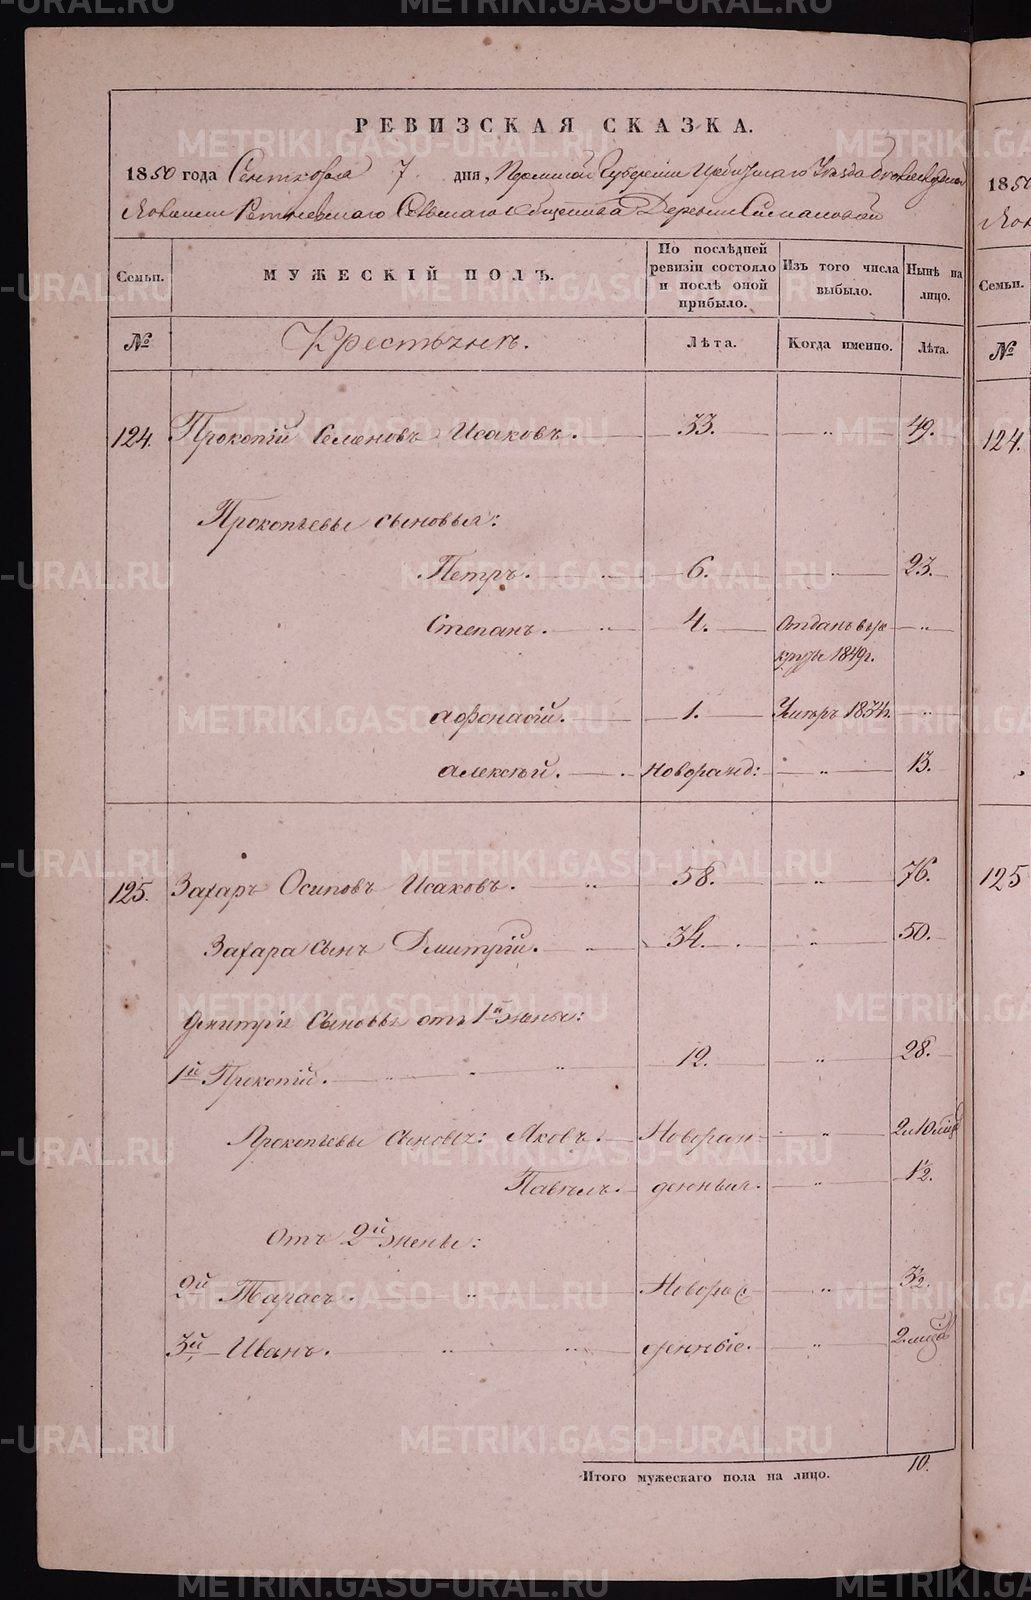 РЕВИЗСКАЯ СКАЗКА.
1850 года Сентября 7 дня, Пермской Губерніи Ирбитскаго Уезда
Волости Сельскаго Общества Деревни Симановой
Семьи. МУЖЕСКІЙ ПОЛЪ. По послѣдней ревизіи состояло и послѣ оной прибыло. Изъ того числа выбыло. Нынѣ на лицо.
№ Крестьяне. Лѣта. Когда именно. Лѣта.
124. Прокопій Семеновъ Исаковъ. 33. " 49.
Прокопьевы сыновья:
Петръ. 6. " 23.
Степанъ. 4. Отданъ въ ре
круты 1849г. "
Афонасій. 1. Умеръ 1834г. "
Алексѣй. Новоражд: " 13.
125. Захаръ Осиповъ Исаковъ. 58. " 76.
Захара сынъ Дмитрій. 34. " 50.
Дмитрія Сыновья отъ 1й жены:
1й Прокопій. 12. " 28.
Прокопьевы Сыновья: Яковъ. Новорож " 2 и 10 мѣся
Павелъ. денныя. " 1/2.
Отъ 2й жены:
2й Тарасъ. Новорож " 3 1/2.
3й Иванъ. денные. " 2 мѣся
Итого мужескаго пола на лицо. 10.
1850
Семьи.
№
124.
125
METRIKI.GASO-URAL.RU